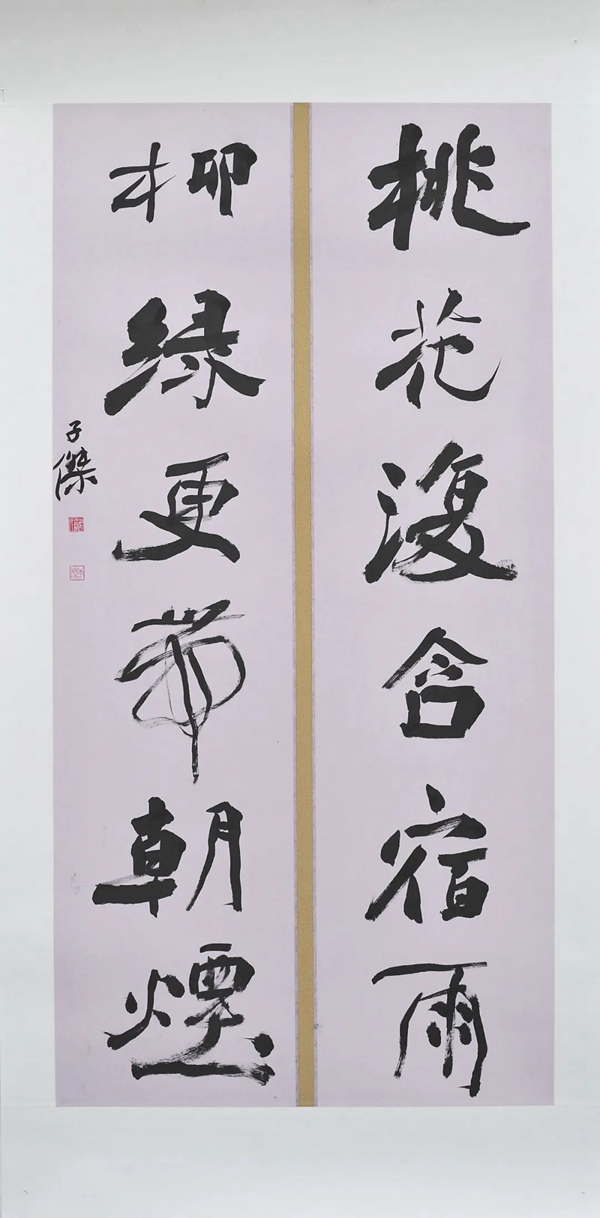 桃花復含宿雨
柳緑更帶朝煙
子傑